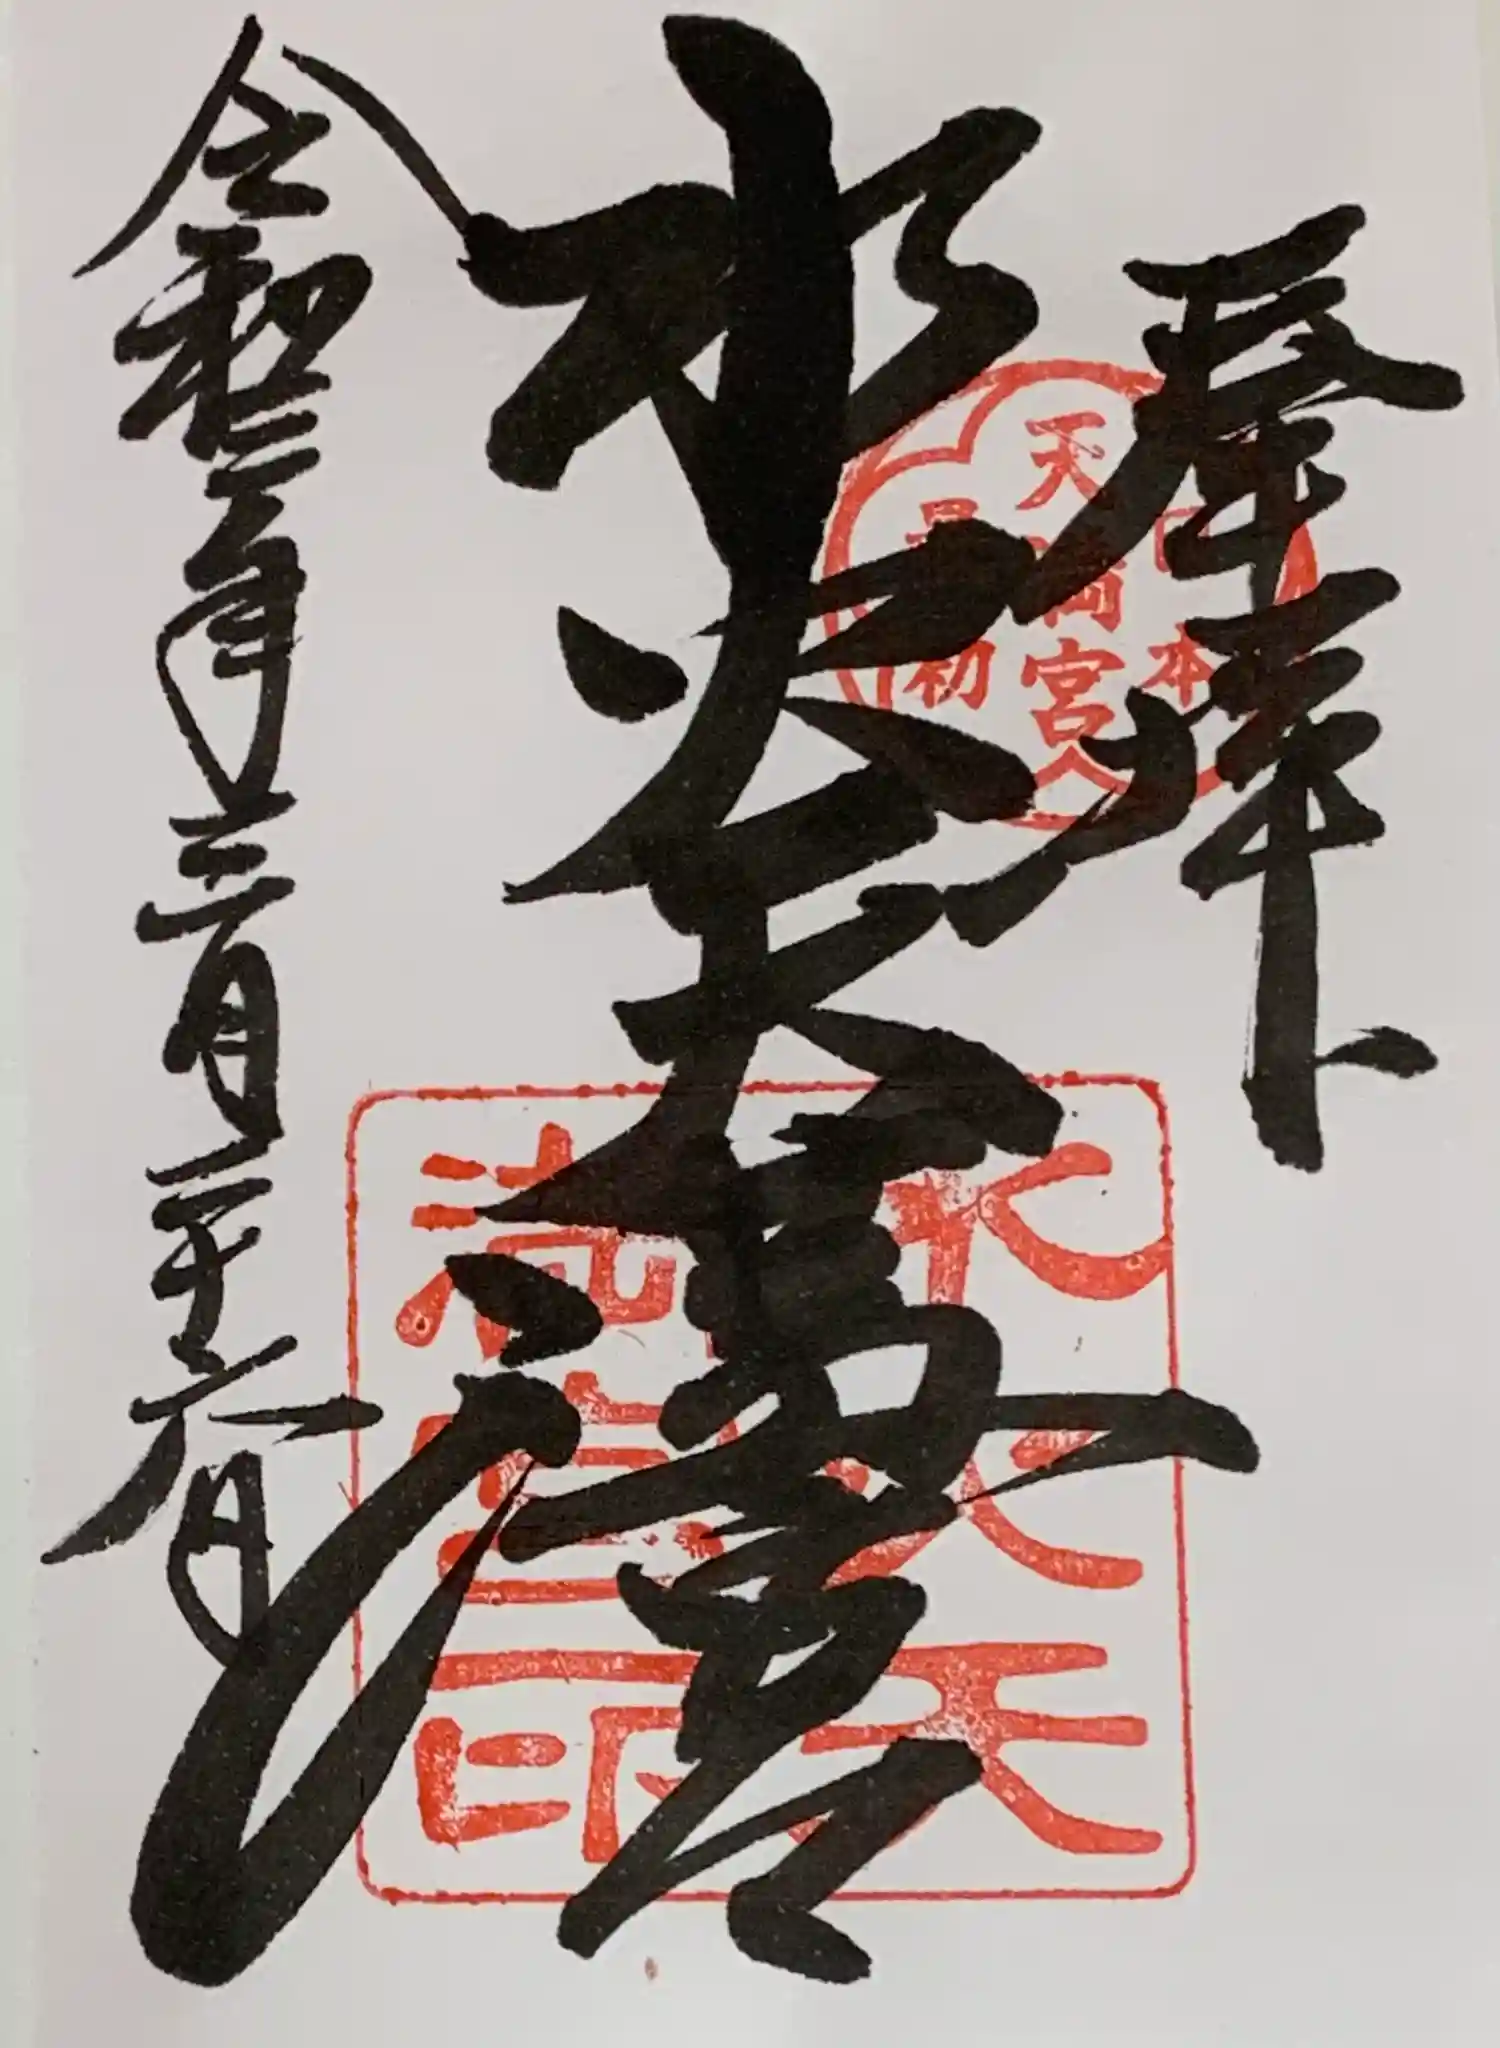 奉拝
日本
天満宮
最初
水火天満宮
水火天
満宮印
令和三年三月二十六日